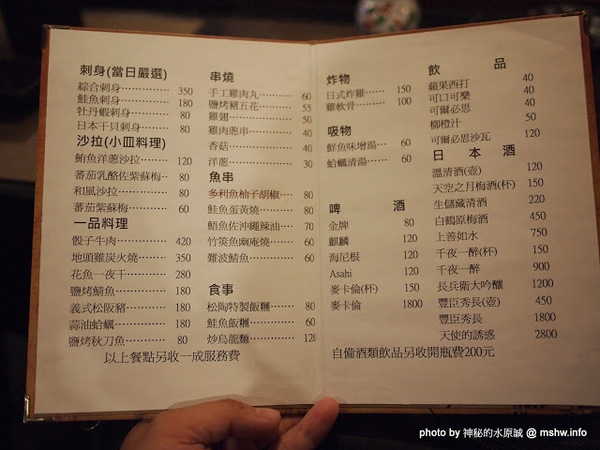 刺身(當日嚴選)
綜合刺身 350
鮭魚刺身 180
牡丹蝦刺身 80
日本干貝刺身 80
沙拉(小皿料理)
鮪魚洋蔥沙拉 120
蕃茄乳酪佐紫蘇梅 80
和風沙拉 80
蕃茄紫蘇梅 60
一品料理
骰子牛肉 420
地頭雞炭火燒 350
花魚一夜干 280
鹽烤鯖魚 180
義式松阪豬 180
蒜油蛤蠣 180
鹽烤秋刀魚 80
以上餐點另收一成服務費
串燒
手工雞肉丸 60
鹽烤豬五花 55
雞翅 50
雞肉蔥串 40
香菇 40
洋蔥 30
魚串
多利魚柚子胡椒 80
鮭魚蛋黃燒 80
鮨魚佐沖繩辣油 70
竹筴魚幽庵燒 60
難波鯖魚 60
食事
松陶特製飯糰 80
鮭魚飯糰 60
炒烏龍麵 120
炸物
日式炸雞 150
雞軟骨 100
吸物
鮮魚味增湯 60
蛤蠣清湯 60
啤酒
金牌 80
麒麟 120
海尼根 120
Asahi 120
麥卡倫(杯) 150
麥卡倫 1800
飲品
蘋果西打 40
可口可樂 40
可爾必思 40
柳橙汁 50
可爾必思沙瓦 120
日本酒
溫清酒(壺) 120
天空之月梅酒(杯) 150
生儲藏清酒 220
白鶴原梅酒 450
上善如水 750
千夜一醉(杯) 150
千夜一醉 900
長兵衛大吟釀 1200
豐臣秀長(壺) 450
豐臣秀長 1800
天使的誘惑 2800
自備酒類飲品另收開瓶費200元
photo by 神秘的水原誠 @ mshw.info